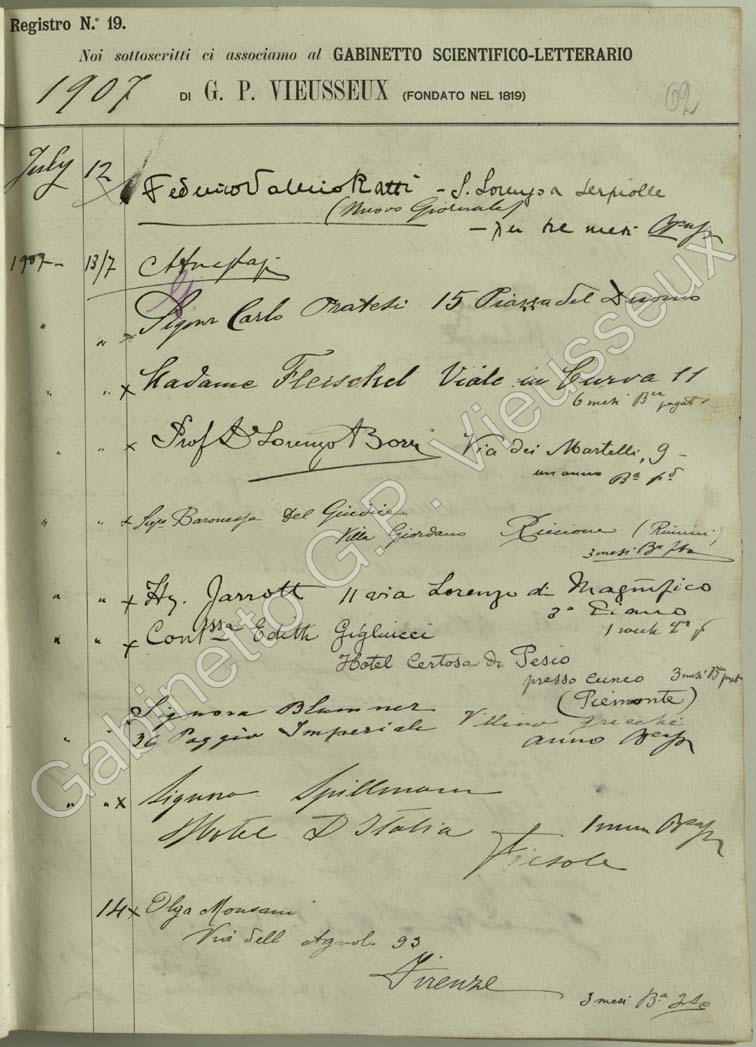 Registro N.º 19.
Noi sottoscritti ci associamo al GABINETTO SCIENTIFICO-LETTERARIO
1907 DI G. P. VIEUSSEUX (FONDATO NEL 1819) 62
July 12 Federico Valerio Ratti - S. Lorenzo a Serpiolle
(Nuovo Giornale)
- per tre mesi
1907 - 13/7
" " Signor Carlo Pratesi 15 Piazza del Duomo
x Madame Fleischel Viale in Curva 11
6 mesi Bᵃ pagato
" " x Prof Dʳ Lorenzo Borri Via dei Martelli, 9 -
un anno Bᵃ pᵒ
" " x Sigʳᵃ Baronessa Del Giudice
Villa Giordano Riccione (Rimini)
3 mesi Bᵃ
" " x Hy. Jarrott 11 via Lorenzo di Magnifico
3º Piano
1 week
" " x Contssa Edith Gigliucci
Hotel Certosa di Pesio
presso Cuneo 3 mesi Bᵃ
(Piemonte)
Signora Blumner
" " 36 Poggio Imperiale Villino
anno
" " x Signora Spillmann
Hotel D'Italia
Fiesole
14 x Olga Monsani
Via dell' Agnolo 93
Firenze
3 mesi Bᵃ
Gabinetto G.P. Vieusseux